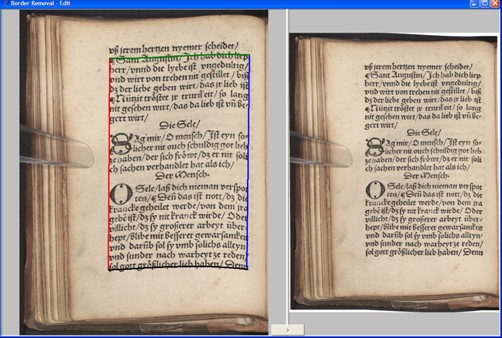 Border Removal - Edit
vß jerem hertzen nyemer scheidet/
¶ Sant Augustin/ Jch hab dich liep
herr/ vnnd die lyebe ist vngedultig/
vnd wirt von trehen nit gestillet/ biß
dz der liebe geben wirt/ das jr lieb ist
¶ Nützit tröstet jr so lang
nit gesehen wirt/ das da lieb ist vñ be-
gert wirt/
Die Sele/
SAg mir/ O mensch/ Jst eyn so-
licher nit ouch schuldig got lieb
zehaben/ der sich fröwet/ dz er nie soli
ch sachen verhandlet hat als ich/
Der Mensch.
O Sele/ laß dich nieman verspot
ten/ ¶ Deñ das ist nott/ dz die
krancke geheilet werde/ von dem
gebē ist/ dz sy nit kranck wirde/ Oder
villicht/ dz sy größerer arbeyt über-
hept/ blibe mit besserer
vnd darüb sol sy vmb solichs alleyn
vnd sunder nach warheyt ze reden/
sol gott größlicher lieb haben/ Denn
>
vß jerem hertzen nyemer scheidet/
¶ Sant Augustin/ Jch hab dich liep
herr/ vnnd die lyebe ist vngedultig/
vnd wirt von trehen nit gestillet/ biß
dz der liebe geben wirt/ das jr lieb ist
¶ Nützit tröstet jr so lang
nit gesehen wirt/ das da lieb ist vñ be-
gert wirt/
Die Sele/
SAg mir/ O mensch/ Jst eyn so-
licher nit ouch schuldig got lieb
zehaben/ der sich fröwet/ dz er nie soli
ch sachen verhandlet hat als ich/
Der Mensch.
O Sele/ laß dich nieman verspot
ten/ ¶ Deñ das ist nott/ dz die
krancke geheilet werde/ von dem
gebē ist/ dz sy nit kranck wirde/ Oder
villicht/ dz sy größerer arbeyt über-
hept/ blibe mit besserer
vnd darüb sol sy vmb solichs alleyn
vnd sunder nach warheyt ze reden/
sol gott größlicher lieb haben/ Denn